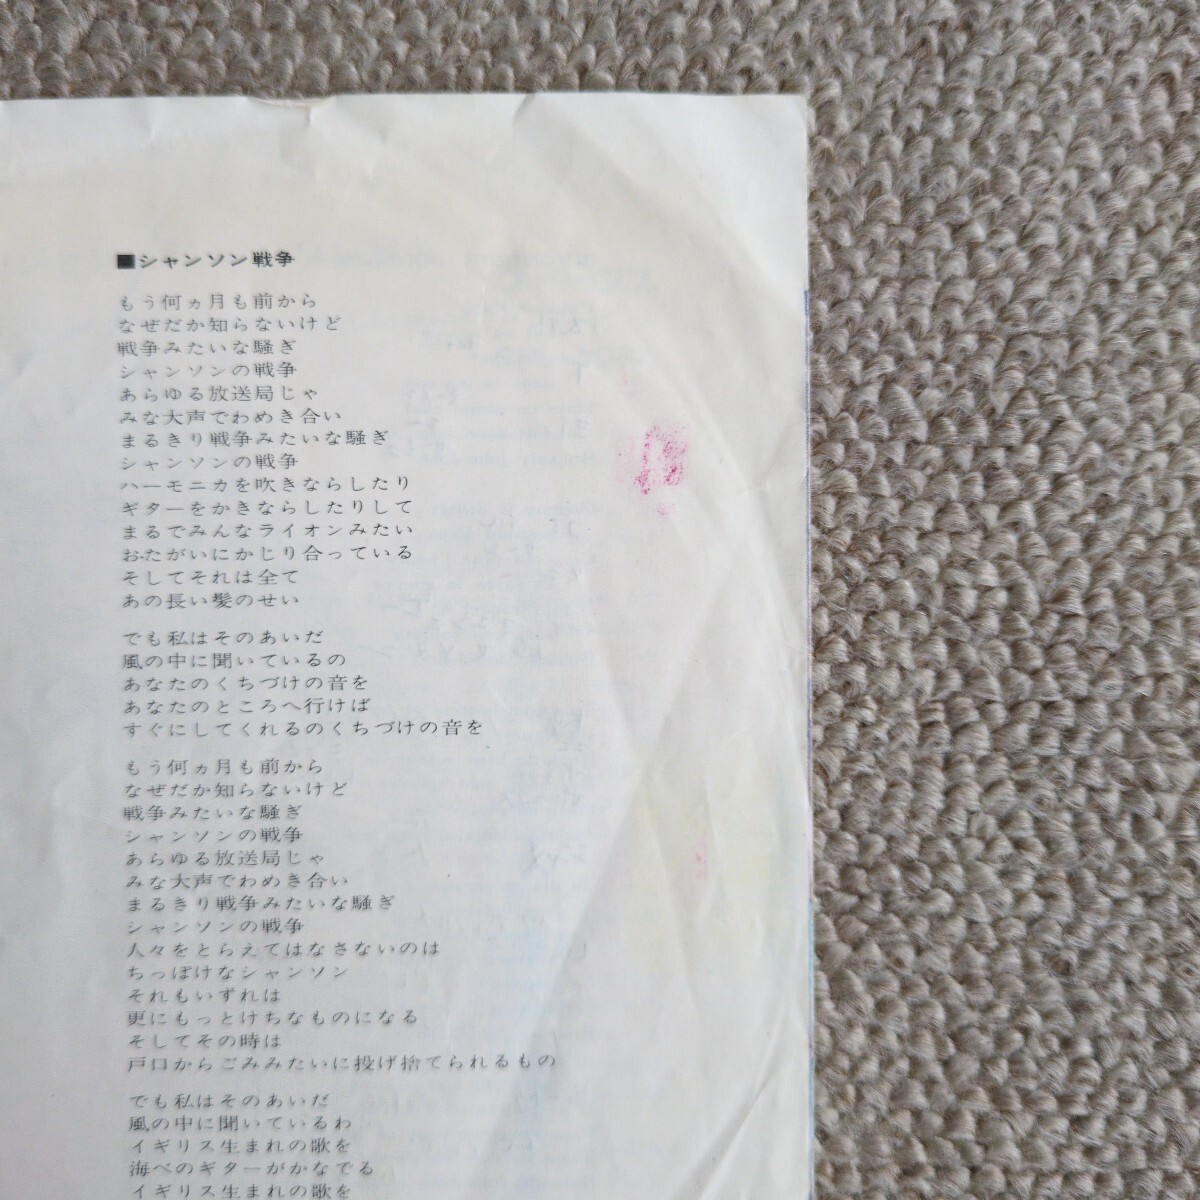 ■シャンソン戦争
もう何ヵ月も前から
なぜだか知らないけど
戦争みたいな騒ぎ
シャンソンの戦争
あらゆる放送局じゃ
みな大声でわめき合い
まるきり戦争みたいな騒ぎ
シャンソンの戦争
ハーモニカを吹きならしたり
ギターをかきならしたりして
まるでみんなライオンみたい
おたがいにかじり合っている
そしてそれは全て
あの長い髪のせい
でも私はそのあいだ
風の中に聞いているの
あなたのくちづけの音を
あなたのところへ行けば
すぐにしてくれるのくちづけの音を
もう何ヵ月も前から
なぜだか知らないけど
戦争みたいな騒ぎ
シャンソンの戦争
あらゆる放送局じゃ
みな大声でわめき合い
まるきり戦争みたいな騒ぎ
シャンソンの戦争
人々をとらえてはなさないのは
ちっぽけなシャンソン
それもいずれは
更にもっとけちなものになる
そしてその時は
戸口からごみみたいに投げ捨てられるもの
でも私はそのあいだ
風の中に聞いているわ
イギリス生まれの歌を
海べのギターがかなでる
イギリス生まれの歌を